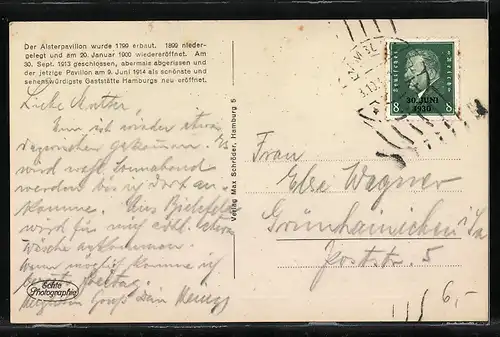 Der Alsterpavillon wurde 1799 erbaut. 1899 nieder-
gelegt und am 20. Januar 1900 wiedereröffnet. Am
30. Sept. 1913 geschlossen, abermals abgerissen und
der jetzige Pavillon am 9. Juni 1914 als schönste und
sehenswürdigste Gaststätte Hamburgs neu eröffnet.
Liebe Mutter!
Nun ich wieder etwas
dazwischen gekommen. Es
wird wohl Sonnabend
werden bis ich dort an-
komme. Aus Bielefeld
wird für mich evtl. schon
Wäsche ankommen.
Wenn möglich komme ich
bereits Freitag.
Herzlichen Gruß Dein
Echte
Photographie
Verlag Max Schröder, Hamburg 5
Deutsches Reich
8 8
30. JUNI
1930
Frau
Else Wagner
Grünhainichen i/Sa
Poststr. 5
6,-